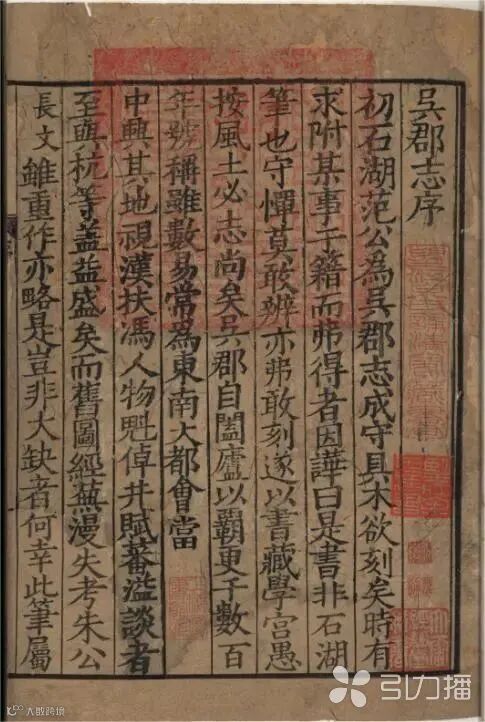 吳郡志序
初石湖范公為吳郡志成守具木欲刻矣時有
求附某事于籍而弗得者因譁曰是書非石湖
筆也守憚莫敢辨亦弗敢刻遂以書藏學宮愚
按風土必志尚矣吳郡自闔廬以霸更千數百
年號稱雖數易常為東南大都會當
中興其地視漢扶馮人物魁倬井賦蕃溢談者
至與杭等蓋益盛矣而舊圖經蕪漫失考朱公
長文雖重作亦略是豈非大缺者何幸此筆屬
引力播
大数跨境